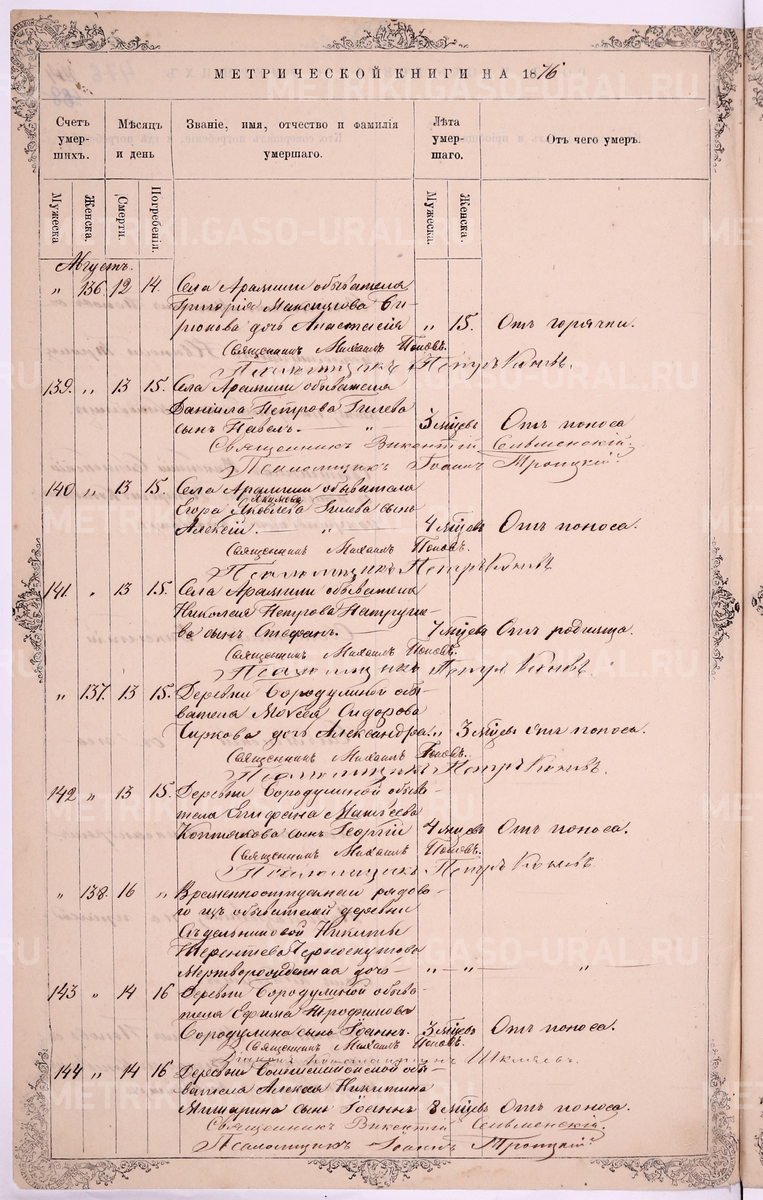 МЕТРИЧЕСКОЙ КНИГИ НА 1876
Счетъ умер-шихъ. Мѣсяцъ и день Званіе, имя, отчество и фамилія умершаго. Лѣта умер-шаго. Отъ чего умеръ.
Мужеска Женска. Смерти. Погребенія. Мужеска. Женска.
Августъ.
„ 136. 12 14 Села Арамили обывателя
Григорія Максимова Би-
рюкова дочь Анастасія „ 15. Отъ горячки.
Священникъ Михаилъ Поповъ.
Псаломщикъ Петръ
139. „ 13 15. Села Арамили обывателя
Даніила Петрова Гилева
сынъ Павелъ. „ 3 мѣсцевъ Отъ поноса
Священникъ Викентій Сельменскій.
Псаломщикъ Іоаннъ Троицкій.
140 „ 13 15. Села Арамили обывателя
Егора Яковлева Гилева сынъ
Алексій. „ 4 мѣсцевъ Отъ поноса.
Священникъ Михаилъ Поповъ.
Псаломщикъ Петръ
141. „ 13 15. Села Арамили обывателя
Николая Петрова Патруше-
ва сынъ Стефанъ. 7 мѣсцевъ Отъ родимца.
Священникъ Михаилъ Поповъ.
Псаломщикъ Петръ
„ 137. 13 15. Деревни Бородулиной обы-
вателя Моѵсея Сидорова
Чиркова дочь Александра. „ 3 мѣсцевъ Отъ поноса.
Священникъ Михаилъ Поповъ.
Псаломщикъ Петръ
142 „ 13 15. Деревни Бородулиной обыва-
теля Епифана Матѳеева
Коптякова сынъ Георгій 4 мѣсцевъ Отъ поноса.
Священникъ Михаилъ Поповъ.
Псаломщикъ Петръ
„ 138. 16 „ Временноотпускнаго рядова-
го изъ обывателей деревни
Сѣдельниковой Никиты
Терентьева Черноскутова
Мертворожденная дочь „ „ „
143 „ 14 16 Деревни Бородулиной обыва-
теля Ефима Трофимова
Бородулина сынъ Іоаннъ. 3 мѣсцевъ Отъ поноса.
Священникъ Михаилъ Поповъ.
144 „ 14 16 Деревни обы-
вателя Алексея Никитина
Мишарина сынъ Іоаннъ 8 мѣсцевъ Отъ поноса.
Священникъ Викентій Сельменскій.
Псаломщикъ Іоаннъ Троицкій.
METRIKI.GASO-URAL.RU